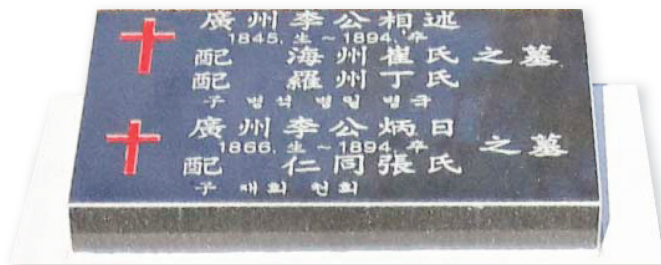 廣州李公相述
1845. 生 ~ 1894. 卒
配 海州崔氏 之墓
配 羅州丁氏
子 병석 병일 병규
廣州李公炳日 之墓
1866. 生 ~ 1894. 卒
配 仁同張氏
子 재희 헌희